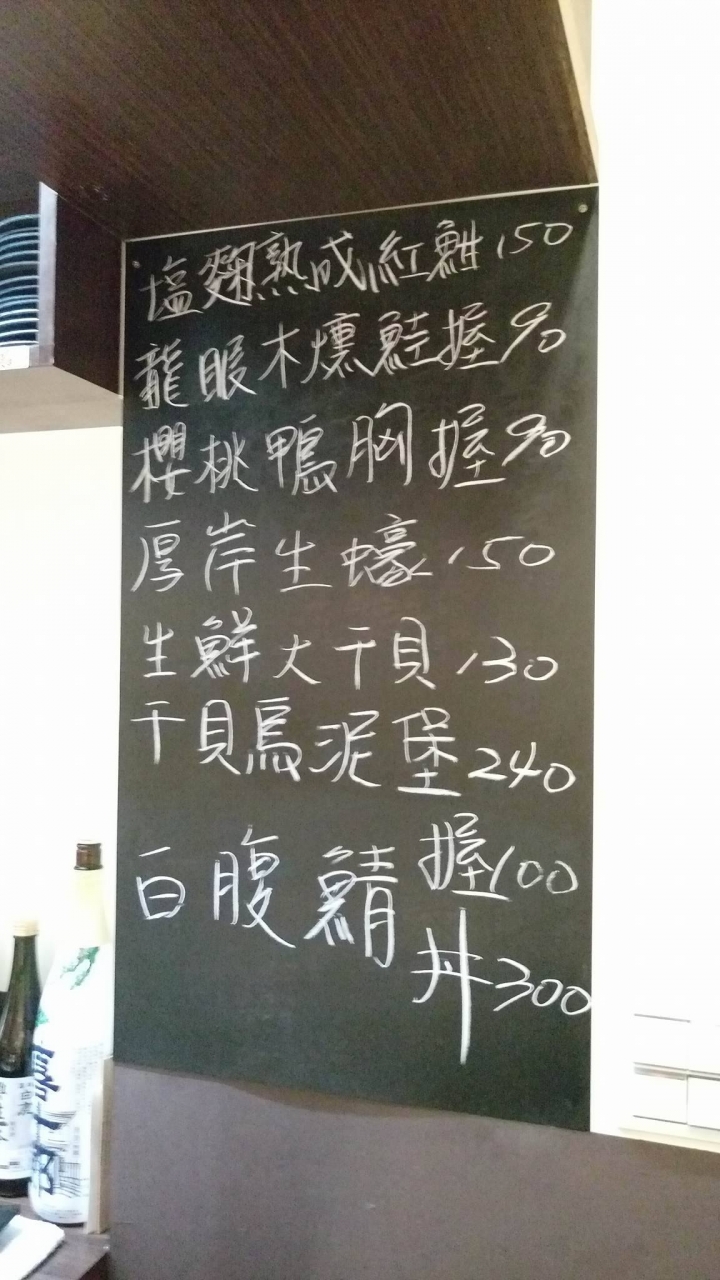 塩麴熟成紅魽150
龍眼木燻鮭握90
櫻桃鴨胸握90
厚岸生蠔150
生鮮大干貝130
干貝馬泥堡240
白腹鯖 握100
丼300